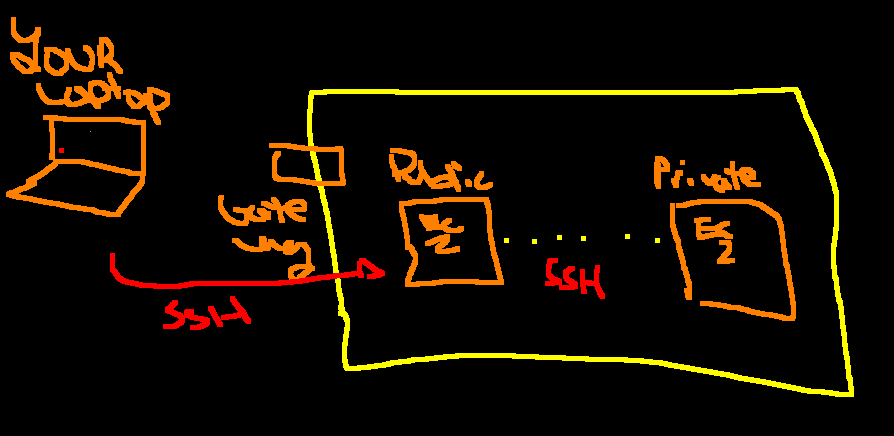 YOUR
Laptop
Gate
way
Public
EC
2
Private
EC
2
SSH
SSH